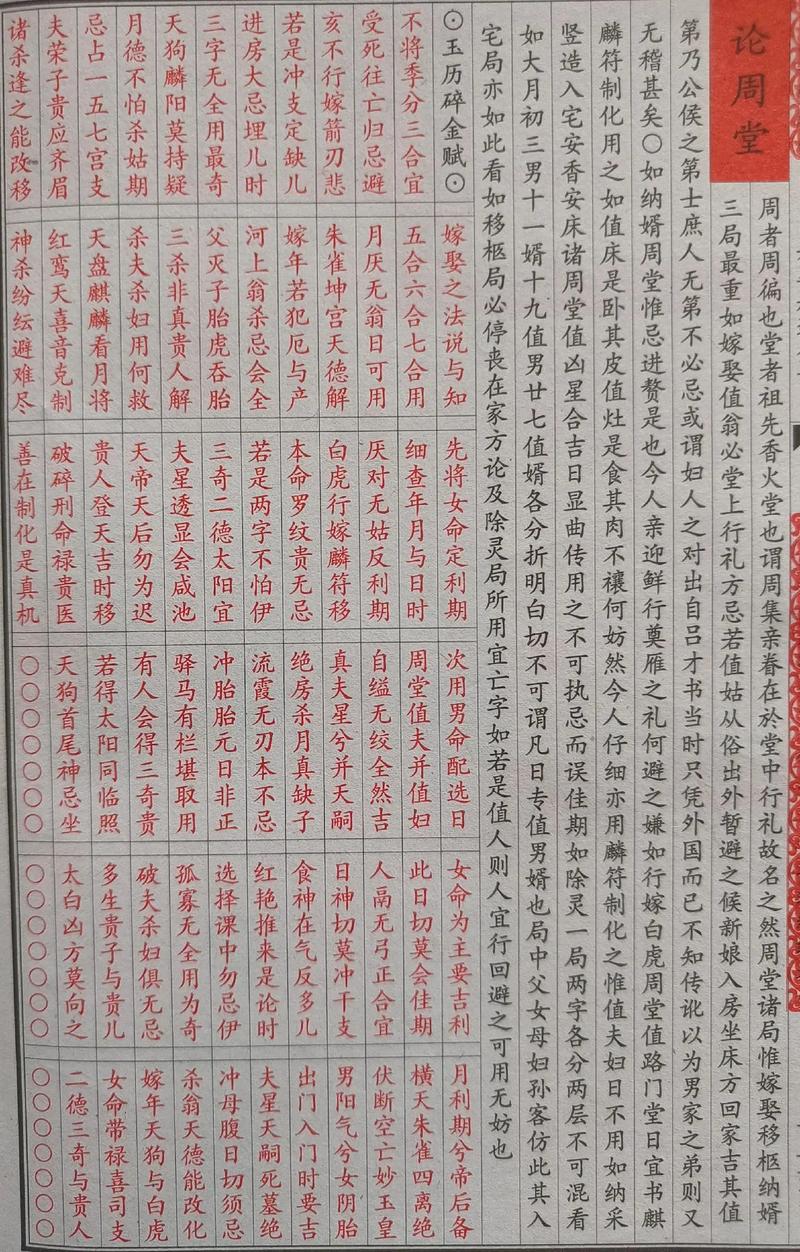 论周堂
周者周徧也堂者祖先香火堂也谓周集亲眷在於堂中行礼故名之然周堂诸局惟嫁娶移柩纳婿
三局最重如嫁娶值翁必堂上行礼方忌若值姑从俗出外暂避之候新娘入房坐床方回家吉其值
第乃公侯之第士庶人无第不必忌或谓妇人之对出自吕才书当时只凭外国而已不知传讹以为男家之弟则又
无稽甚矣〇如纳婿周堂惟忌进赘是也今人亲迎鲜行奠雁之礼何避之嫌如行嫁白虎周堂值路门堂日宜书麒
麟符制化用之如值床是卧其皮值灶是食其肉不禳何妨然今人仔细亦用麟符制化之惟值夫妇日不用如纳采
竖造入宅安香安床诸周堂值凶星合吉日显曲传用之不可执忌而误佳期如除灵一局两字各分两层不可混看
如大月初三男十一婿十九值男廿七值婿各分折明白切不可谓凡日专值男婿也局中父女母妇孙客仿此其入
宅局亦如此看如移柩局必停丧在家方论及除灵局所用宜亡字如若是值人则人宜行回避之可用无妨也
⊙玉历碎金赋⊙
嫁娶之法说与知
先将女命定利期
次用男命配选日
女命为主要吉利
月利期兮帝后备
不将季分三合宜
五合六合七合用
细查年月与日时
周堂值夫并值妇
此日切莫会佳期
横天朱雀四离绝
受死往亡归忌避
月厌无翁日可用
厌对无姑反利期
自缢无绞全然吉
人鬲无弓正合宜
伏断空亡妙玉皇
亥不行嫁箭刃悲
朱雀坤宫天德解
白虎行嫁麟符移
真夫星兮并天嗣
日神切莫冲干支
男阳气兮女阴胎
若是冲支定缺儿
嫁年若犯厄与产
本命罗纹贵无忌
绝房杀月真缺子
食神在气反多儿
出门入门时要吉
进房大忌埋儿时
河上翁杀忌会全
若是两字不怕伊
流霞无刃本不忌
红艳推来是论时
夫星天嗣死墓绝
三字无全用最奇
父灭子胎虎吞胎
三奇二德太阳宜
冲胎胎元日非正
选择课中勿忌伊
冲母腹日切须忌
天狗麟阳莫持疑
三杀非真贵人解
夫星透显会咸池
驿马有栏堪取用
孤寡无全用为奇
杀翁天德能改化
月德不怕杀姑期
杀夫杀妇用何救
天帝天后勿为迟
有人会得三奇贵
破夫杀妇俱无忌
嫁年天狗与白虎
忌占一五七宫支
天盘麒麟看月将
贵人登天吉时移
若得太阳同临照
多生贵子与贵儿
女命带禄喜司支
夫荣子贵应齐眉
红鸾天喜音克制
破碎刑命禄贵医
天狗首尾神忌坐
太白凶方莫向之
二德三奇与贵人
诸杀逢之能改移
神杀纷纭避难尽
善在制化是真机
〇〇〇〇〇〇〇
〇〇〇〇〇〇〇
〇〇〇〇〇〇〇